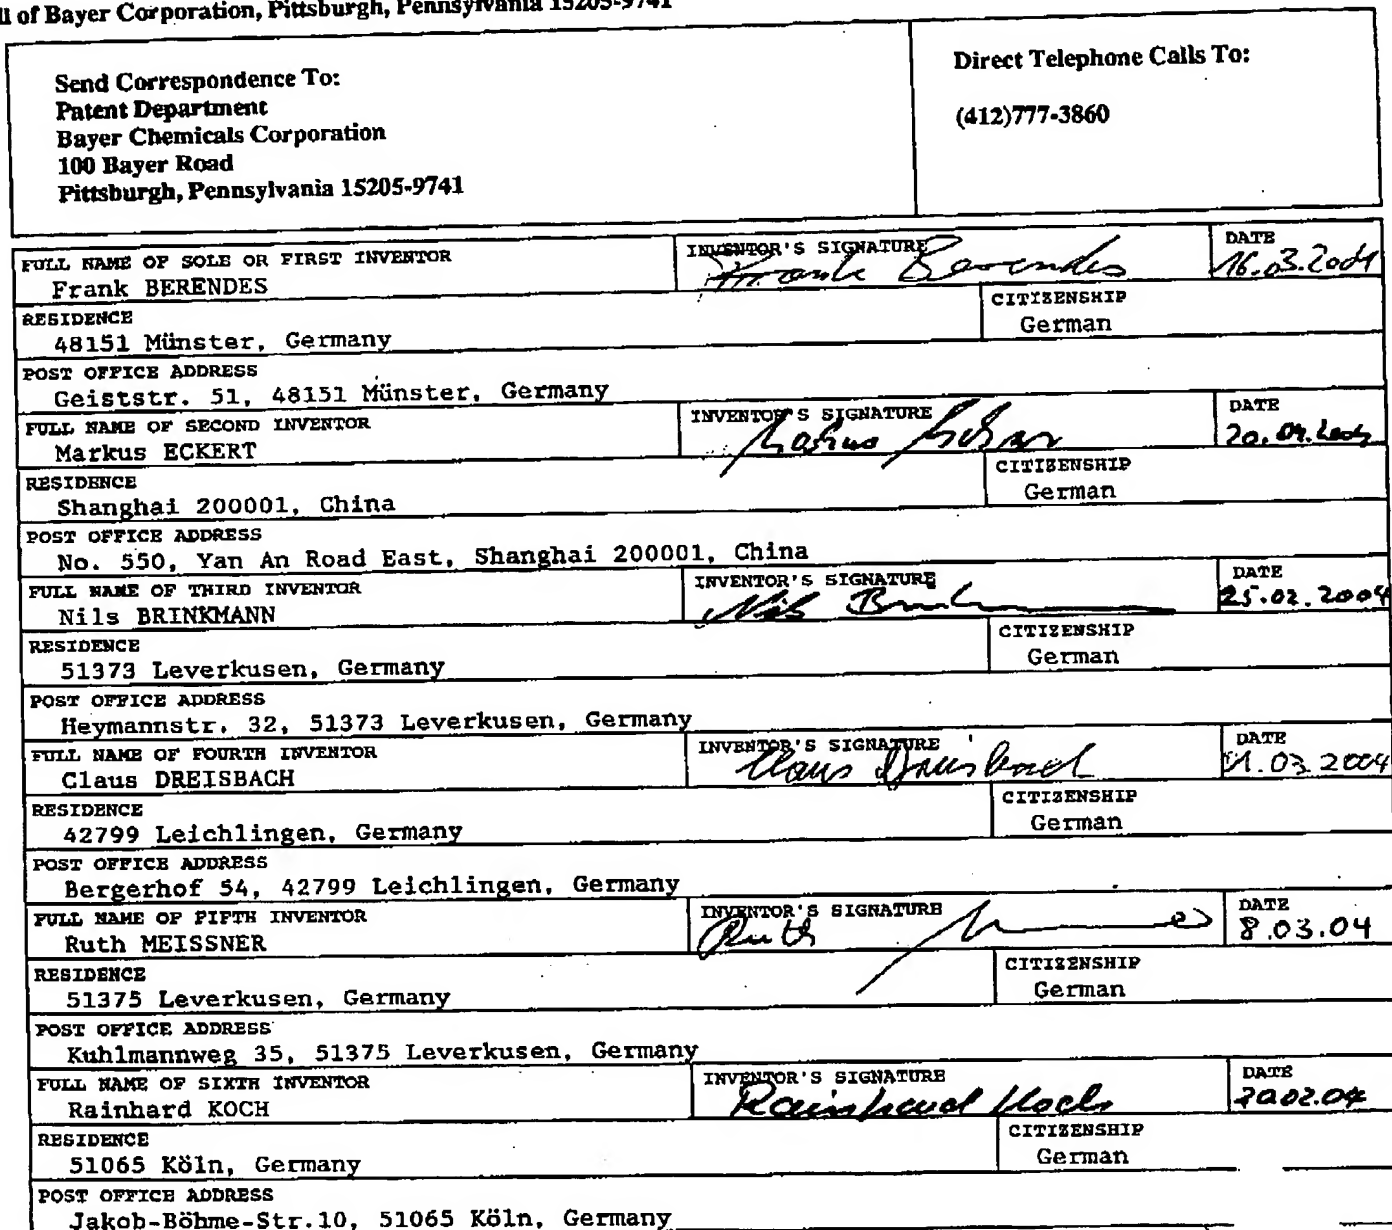 ll of Bayer Corporation, Pittsburgh, Pennsylvania 15205-9741
Send Correspondence To:
Patent Department
Bayer Chemicals Corporation
100 Bayer Road
Pittsburgh, Pennsylvania 15205-9741
Direct Telephone Calls To:
(412)777-3860
FULL NAME OF SOLE OR FIRST INVENTOR
Frank BERENDES
INVENTOR'S SIGNATURE
Frank Berendes
DATE
16.03.2004
RESIDENCE
48151 Münster, Germany
CITIZENSHIP
German
POST OFFICE ADDRESS
Geiststr. 51, 48151 Münster, Germany
FULL NAME OF SECOND INVENTOR
Markus ECKERT
INVENTOR'S SIGNATURE
DATE
RESIDENCE
Shanghai 200001, China
CITIZENSHIP
German
POST OFFICE ADDRESS
No. 550, Yan An Road East, Shanghai 200001, China
FULL NAME OF THIRD INVENTOR
Nils BRINKMANN
INVENTOR'S SIGNATURE
Nils
DATE
25.02.2004
RESIDENCE
51373 Leverkusen, Germany
CITIZENSHIP
German
POST OFFICE ADDRESS
Heymannstr. 32, 51373 Leverkusen, Germany
FULL NAME OF FOURTH INVENTOR
Claus DREISBACH
INVENTOR'S SIGNATURE
Claus Dreisbach
DATE
RESIDENCE
42799 Leichlingen, Germany
CITIZENSHIP
German
POST OFFICE ADDRESS
Bergerhof 54, 42799 Leichlingen, Germany
FULL NAME OF FIFTH INVENTOR
Ruth MEISSNER
INVENTOR'S SIGNATURE
Ruth
DATE
8.03.04
RESIDENCE
51375 Leverkusen, Germany
CITIZENSHIP
German
POST OFFICE ADDRESS
Kuhlmannweg 35, 51375 Leverkusen, Germany
FULL NAME OF SIXTH INVENTOR
Rainhard KOCH
INVENTOR'S SIGNATURE
Rainhard Koch
DATE
RESIDENCE
51065 Köln, Germany
CITIZENSHIP
German
POST OFFICE ADDRESS
Jakob-Böhme-Str.10, 51065 Köln, Germany